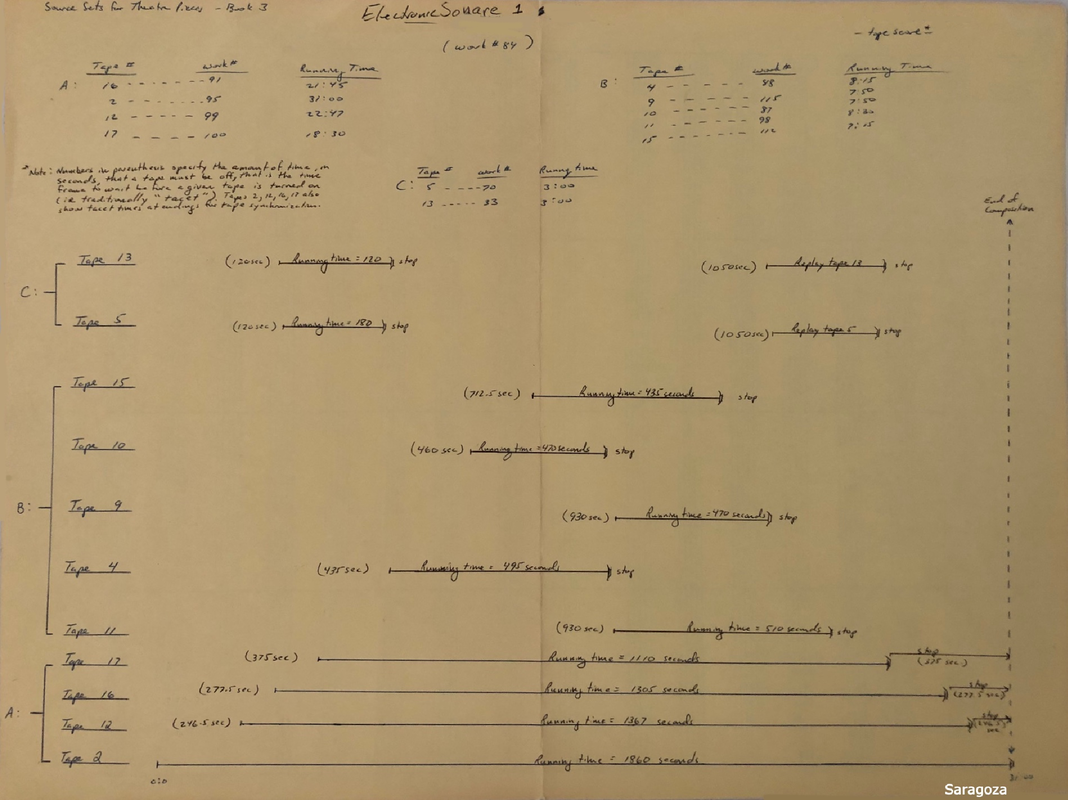 Source Sets for Theatre Pieces - Book 3
Electronic Square 1
(work # 84)
- tape score -
A: Tape # work # Running Time
16 - - - - - - 91 21:45
2 - - - - - - 95 31:00
12 - - - - - - 99 22:47
17 - - - - - - 100 18:30
B: Tape # work # Running Time
4 - - - - - - 88 8:15
9 - - - - - - 115 7:50
10 - - - - - - 87 7:50
11 - - - - - - 98 8:30
15 - - - - - - 112 7:15
*Note: Numbers in parenthesis specify the amount of time, in
seconds, that a tape must be off, that is the time
frame to wait before a given tape is turned on
(ie traditionally "tacet"). Tapes 2, 12, 16, 17 also
show tacet times at endings for tape synchronization.
C: Tape # work # Runing time
5 - - - - 90 3:00
13 - - - - 93 3:00
End of
Composition
C:
Tape 13 (120 sec) Running time = 180 stop (1050 sec) Replay tape 13 stop
Tape 5 (120 sec) Running time = 180 stop (1050 sec) Replay tape 5 stop
B:
Tape 15 (712.5 sec) Running time = 435 seconds stop
Tape 10 (460 sec) Running time = 470 seconds stop
Tape 9 (930 sec) Running time = 470 seconds stop
Tape 4 (435 sec) Running time = 495 seconds stop
Tape 11 (930 sec) Running time = 510 seconds stop
A:
Tape 17 (375 sec) Running time = 1110 seconds stop (375 sec.)
Tape 16 (277.5 sec) Running time = 1305 seconds stop (277.5 sec)
Tape 12 (246.5 sec) Running time = 1367 seconds stop (246.5 sec)
Tape 2 Running time = 1860 seconds
0:0 31:00
Saragoza